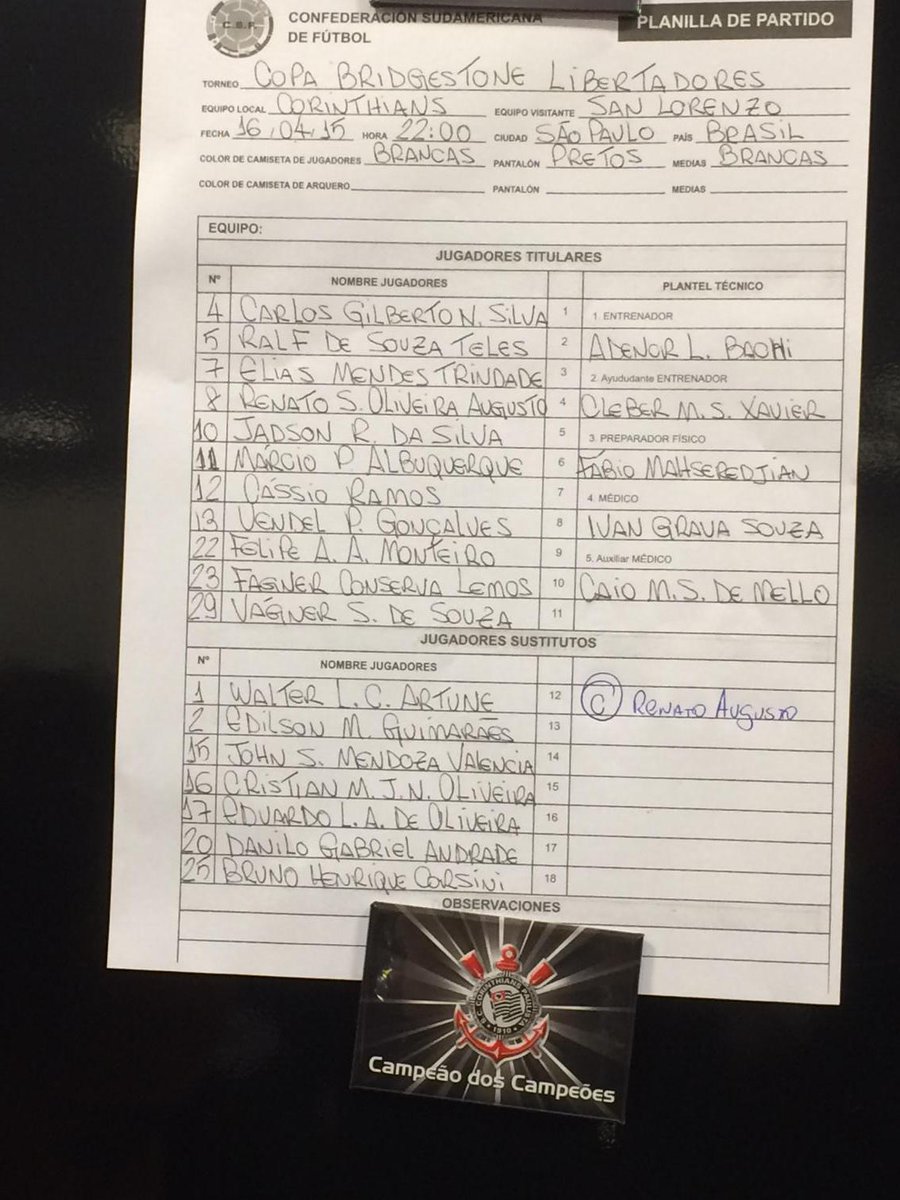 C.S.F.
CONFEDERACIÓN SUDAMERICANA
DE FÚTBOL
PLANILLA DE PARTIDO
TORNEO COPA BRIDGESTONE LIBERTADORES
EQUIPO LOCAL CORINTHIANS EQUIPO VISITANTE SAN LORENZO
FECHA 16/04/15 HORA 22:00 CIUDAD SÃO PAULO PAÍS BRASIL
COLOR DE CAMISETA DE JUGADORES BRANCAS PANTALÓN PRETOS MEDIAS BRANCAS
COLOR DE CAMISETA DE ARQUERO PANTALÓN MEDIAS
EQUIPO:
JUGADORES TITULARES
Nº NOMBRE JUGADORES PLANTEL TÉCNICO
4 CARLOS GILBERTO N. SILVA 1 1. ENTRENADOR
5 RALF DE SOUZA TELES 2 ADENOR L. BACHI
7 ELIAS MENDES TRINDADE 3 2. Ayududante ENTRENADOR
8 RENATO S. OLIVEIRA AUGUSTO 4 CLEBER M. S. XAVIER
10 JADSON R. DA SILVA 5 3. PREPARADOR FÍSICO
11 MÁRCIO P. ALBUQUERQUE 6 FÁBIO MAHSEREDJIAN
12 CÁSSIO RAMOS 7 4. MÉDICO
13 VENDEL P. GONÇALVES 8 IVAN GRAVA SOUZA
22 FELIPE A. A. MONTEIRO 9 5. Auxiliar MÉDICO
23 FAGNER CONSERVA LEMOS 10 CAIO M. S. DE MELLO
29 VÁGNER S. DE SOUZA 11
JUGADORES SUSTITUTOS
Nº NOMBRE JUGADORES
1 WALTER L. C. ARTUNE 12 C RENATO AUGUSTO
2 EDILSON M. GUIMARÃES 13
15 JOHN S. MENDOZA VALENCIA 14
16 CRISTIAN M. J. N. OLIVEIRA 15
17 EDUARDO L. A. DE OLIVEIRA 16
20 DANILO GABRIEL ANDRADE 17
25 BRUNO HENRIQUE CORSINI 18
OBSERVACIONES
S.C. CORINTHIANS PAULISTA
1910
Campeão dos Campeões